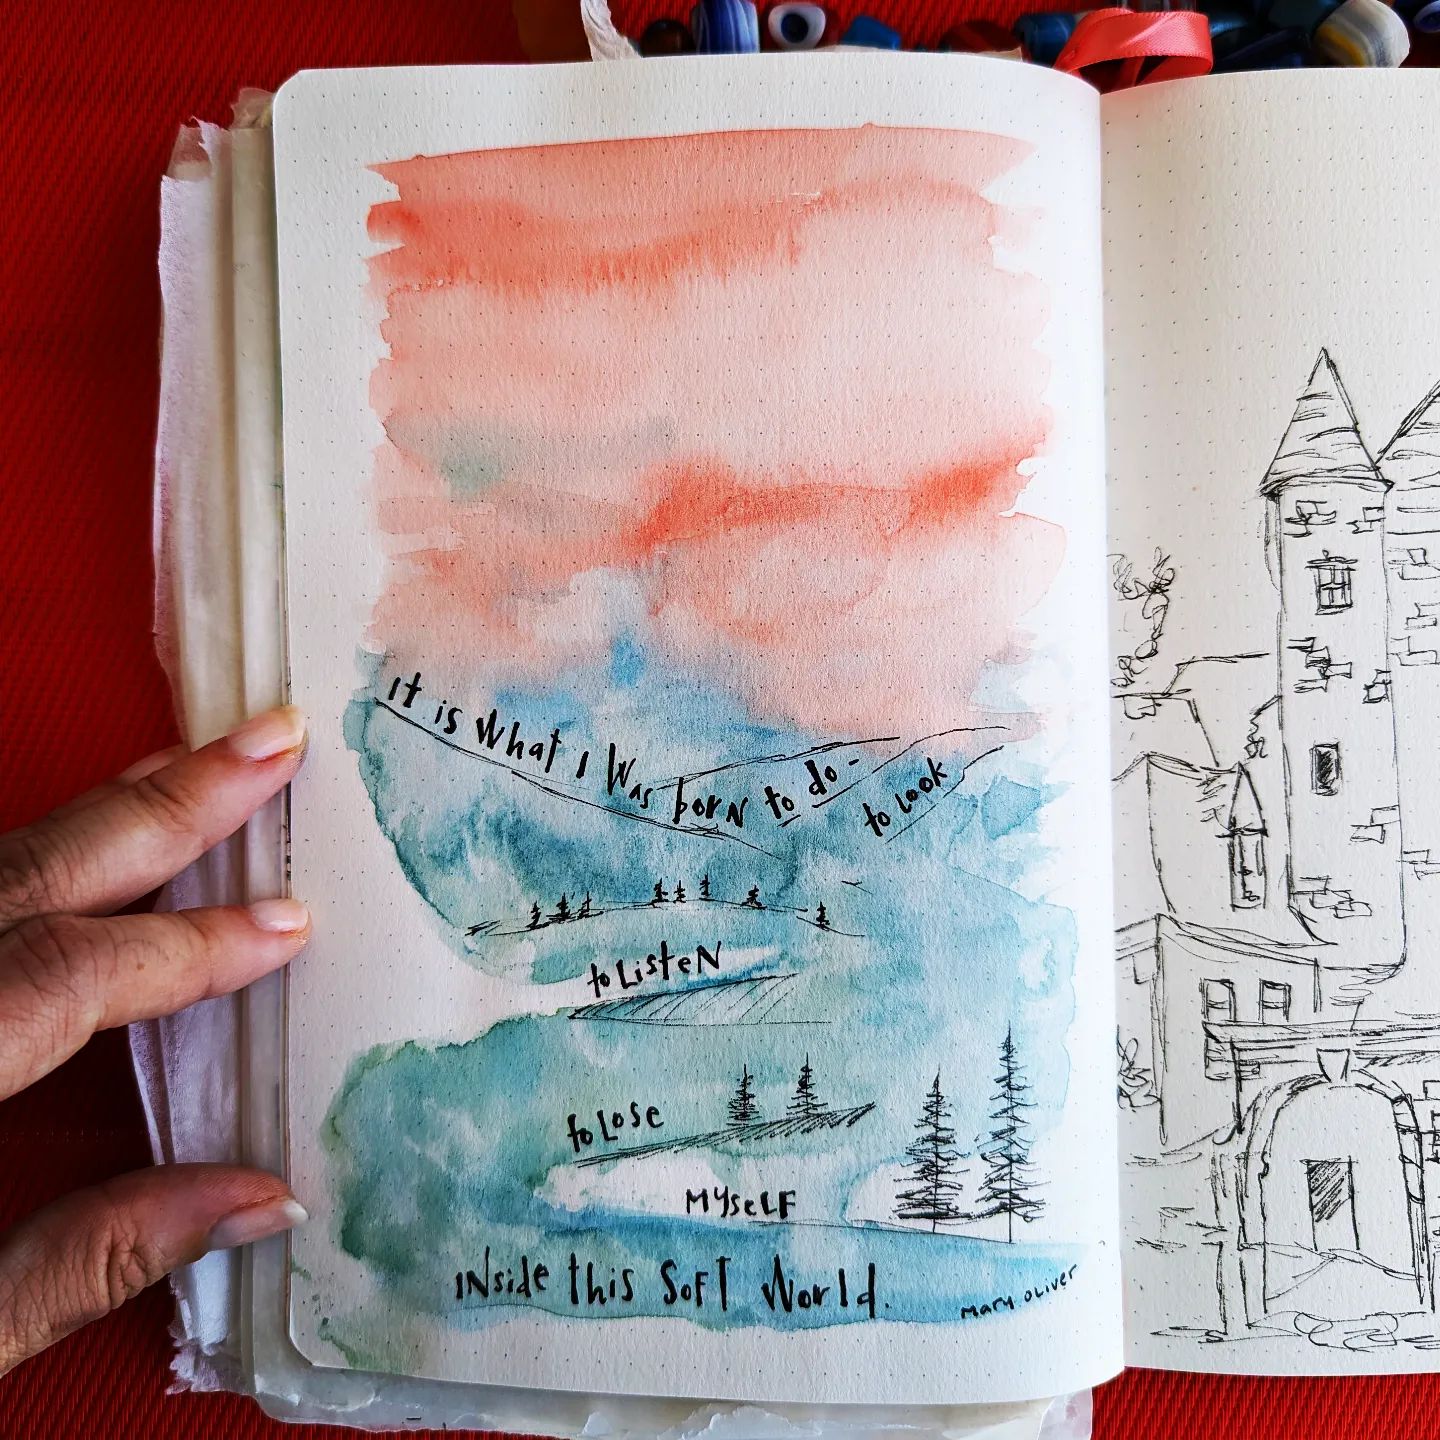 it is what I was born to do -
to look
to listen
to lose
myself
inside this soft world.
mary oliver